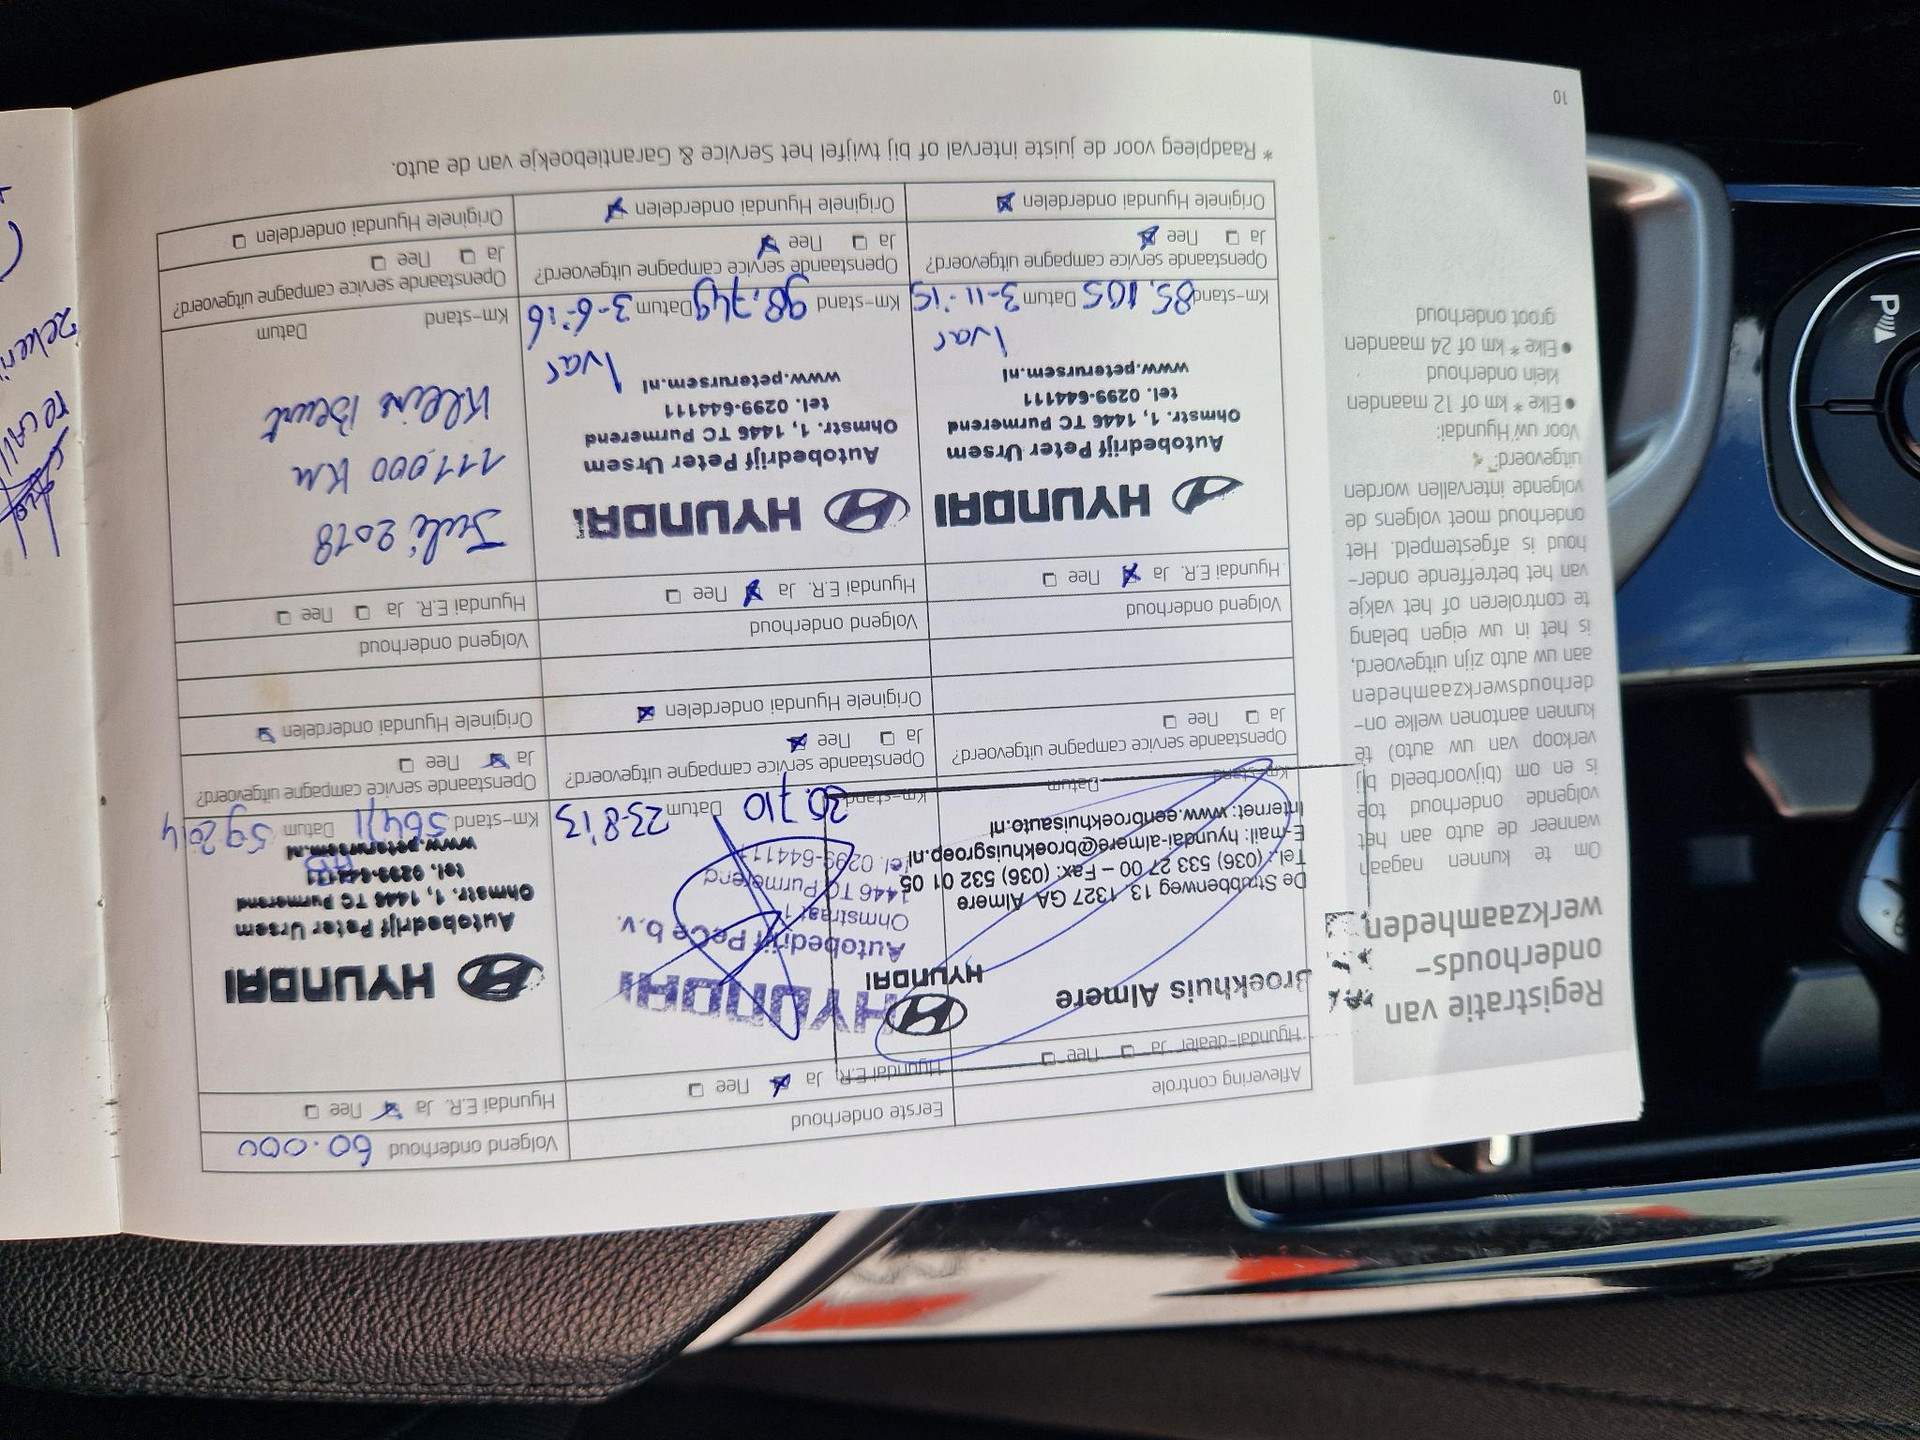 Registratie van
onderhouds-
werkzaamheden
Om te kunnen nagaan
wanneer de auto aan het
volgende onderhoud toe
is en om (bijvoorbeeld bij
verkoop van uw auto) te
kunnen aantonen welke on-
derhoudswerkzaamheden
aan uw auto zijn uitgevoerd,
is het in uw eigen belang
te controleren of het vakje
van het betreffende onder-
houd is afgestempeld. Het
onderhoud moet volgens de
volgende intervallen worden
uitgevoerd:
Voor uw Hyundai:
● Elke * km of 12 maanden
klein onderhoud
● Elke * km of 24 maanden
groot onderhoud
Aflevering controle
Hyundai-dealer Ja Nee
Broekhuis Almere
HYUNDAI
De Strubbenweg 13, 1327 GA Almere
Tel.: (036) 533 27 00 – Fax: (036) 532 01 05
E-mail: hyundai-almere@broekhuisgroep.nl
Internet: www.eenbroekhuisauto.nl
Km-stand Datum
Openstaande service campagne uitgevoerd?
Ja Nee
Eerste onderhoud
Hyundai E.R. Ja Nee
HYUNDAI
Autobedrijf PeCe b.v.
Ohmstraat 1
1446 TC Purmerend
Tel. 0299-644111
Km-stand 30.710 Datum 23-8-'13
Openstaande service campagne uitgevoerd?
Ja Nee
Originele Hyundai onderdelen
Volgend onderhoud 60.000
Hyundai E.R. Ja Nee
HYUNDAI
Autobedrijf Peter Ursem
Ohmstr. 1, 1446 TC Purmerend
tel. 0299-644111
www.peterursem.nl
Km-stand 56411 Datum 5 9 2014
Openstaande service campagne uitgevoerd?
Ja Nee
Originele Hyundai onderdelen
Volgend onderhoud
Hyundai E.R. Ja Nee
HYUNDAI
Autobedrijf Peter Ursem
Ohmstr. 1, 1446 TC Purmerend
tel. 0299-644111
www.peterursem.nl
Ivar
Km-stand 85.105 Datum 3-11-'15
Openstaande service campagne uitgevoerd?
Ja Nee
Originele Hyundai onderdelen
Volgend onderhoud
Hyundai E.R. Ja Nee
HYUNDAI
Autobedrijf Peter Ursem
Ohmstr. 1, 1446 TC Purmerend
tel. 0299-644111
www.peterursem.nl
Ivar
Km-stand 98.749 Datum 3-6-'16
Openstaande service campagne uitgevoerd?
Ja Nee
Originele Hyundai onderdelen
Volgend onderhoud
Hyundai E.R. Ja Nee
Juli 2018
111.000 Km
Kleine Beurt
Km-stand Datum
Openstaande service campagne uitgevoerd?
Ja Nee
Originele Hyundai onderdelen
* Raadpleeg voor de juiste interval of bij twijfel het Service & Garantieboekje van de auto.
10
recall
P